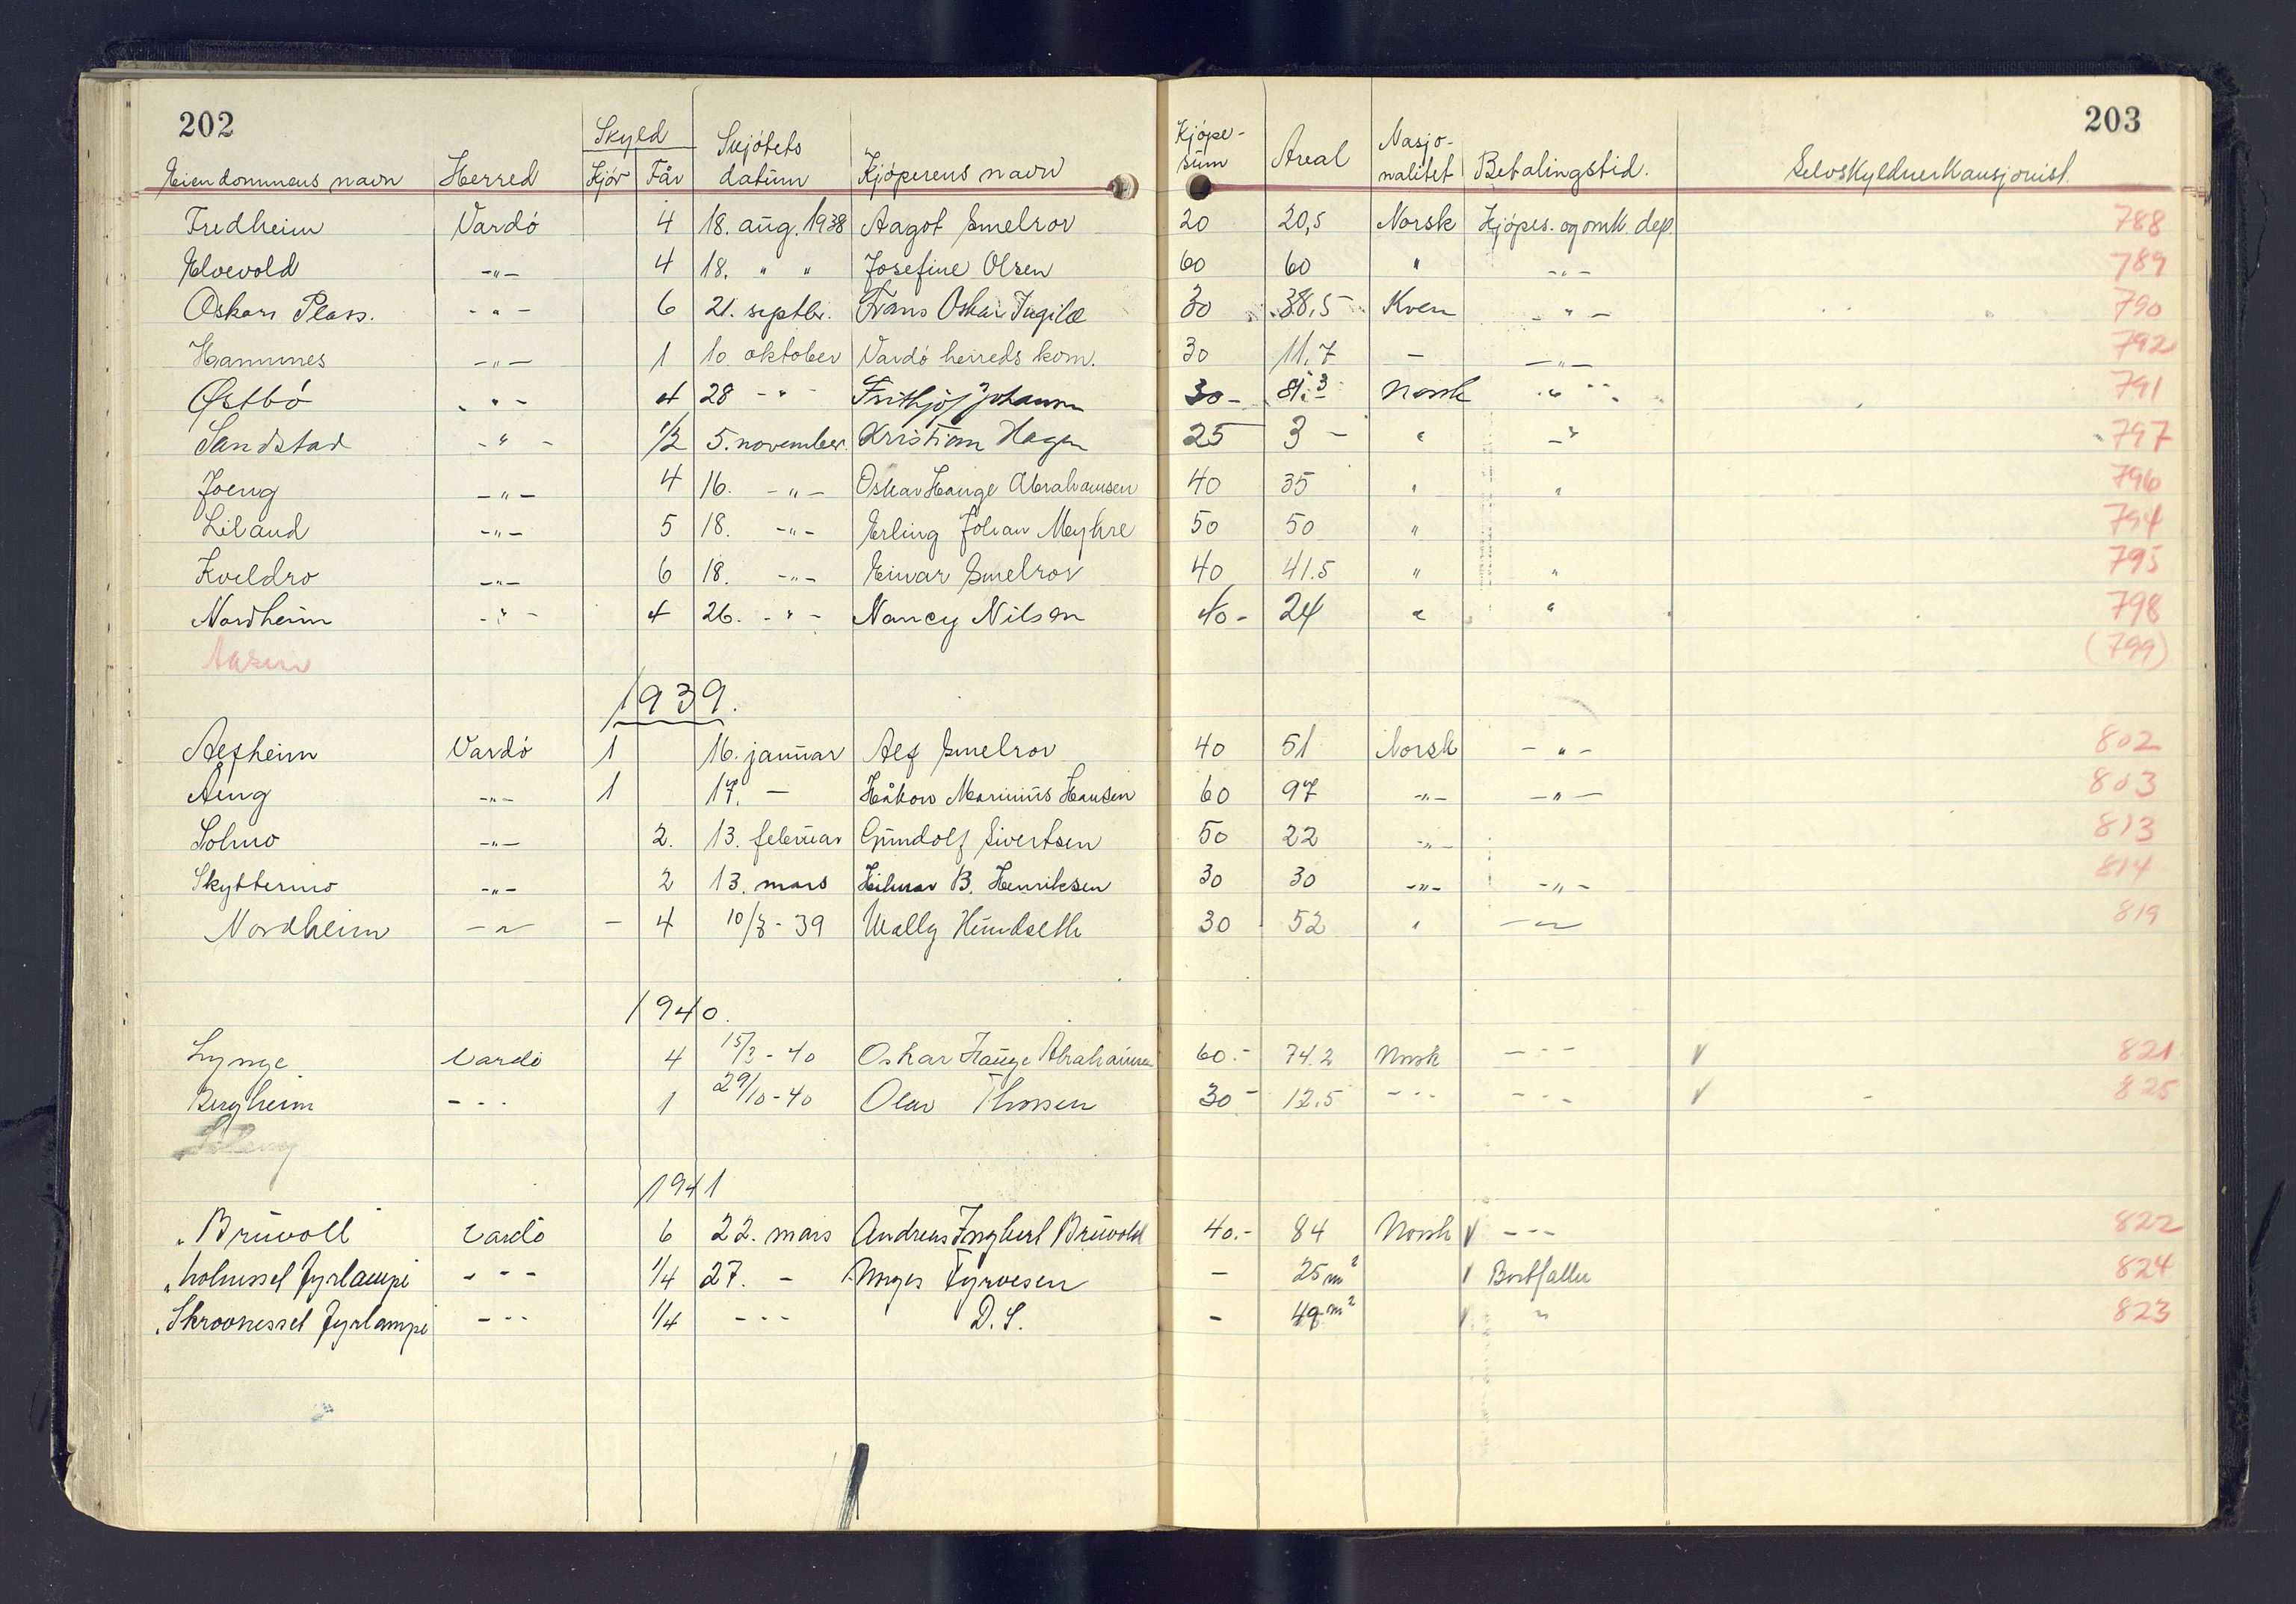 202
203
Skyld
Eiendommens navn Herred Kjør Får Skjøtets datum Kjøperens navn Kjøpesum Areal Nasjonalitet Betalingstid. Selvskyldnerkausjonist.
Fredheim Vardö 4 18. aug. 1938 Aagot Smelror 20 20,5 Norsk Kjøpes. og omk. dep. 788
Elvevold -"- 4 18. " " Josefine Olsen 60 60 " -"- 789
Oskars Plass. -"- 6 21. septbr. Frans Oskar 30 38,5 Kven -"- 790
Hamnnes -"- 1 10. oktober Vardö herreds kom. 30 11.7 - -"- 792
Østbö -"- 4 28 -"- Frithjof Johansen 30- 81.3 Norsk -"- 791
Sandstad -"- 1/2 5. november Kristian Hagen 25 3 - " -"- 797
Joeng -"- 4 16. -"- Oskar Hauge Abrahamsen 40 35 " " 796
Liland -"- 5 18. -"- Erling Johan Myhre 50 50 " 794
Kveldro -"- 6 18. -"- Einar Smelror 40 41.5 " " 795
Nordheim -"- 4 26. -"- Nancy Nilsen 40- 24 " " 798
Aasen (799)
1939.
Alfheim Vardö 1 16. januar Alf Smelror 40 51 Norsk -"- 802
Aeng -"- 1 17. - Håkon Marinius Hansen 60 97 -"- -"- 803
Solmo -"- 2. 13. februar Gundolf Sivertsen 50 22 -"- 813
Skyttermo -"- 2 13. mars Hilmar B. Henriksen 30 30 -"- -"- 814
Nordheim -"- - 4 10/8 - 39 Wally Hundseth 30 52 " -"- 819
1940.
Lynge Vardö 4 15/3 - 40 Oskar Hauge Abrahamsen 60.- 74.2 Norsk - - - V 821
Bergheim - - - 1 29/10 - 40 Olav Thomsen 30- 12.5 - - - - - - V 825
1941
"Bruvoll" Vardö 6 22. mars Andreas Ingbert Bruvold 40.- 84 Norsk V - - - 822
"holnesset fyrlampe - - - 1/4 27. - Norges Fyrvesen - 25 m² V Bortfaller 824
"Skrovnesset fyrlampe - - - 1/4 - - - D.S. - 49 m² V " 823